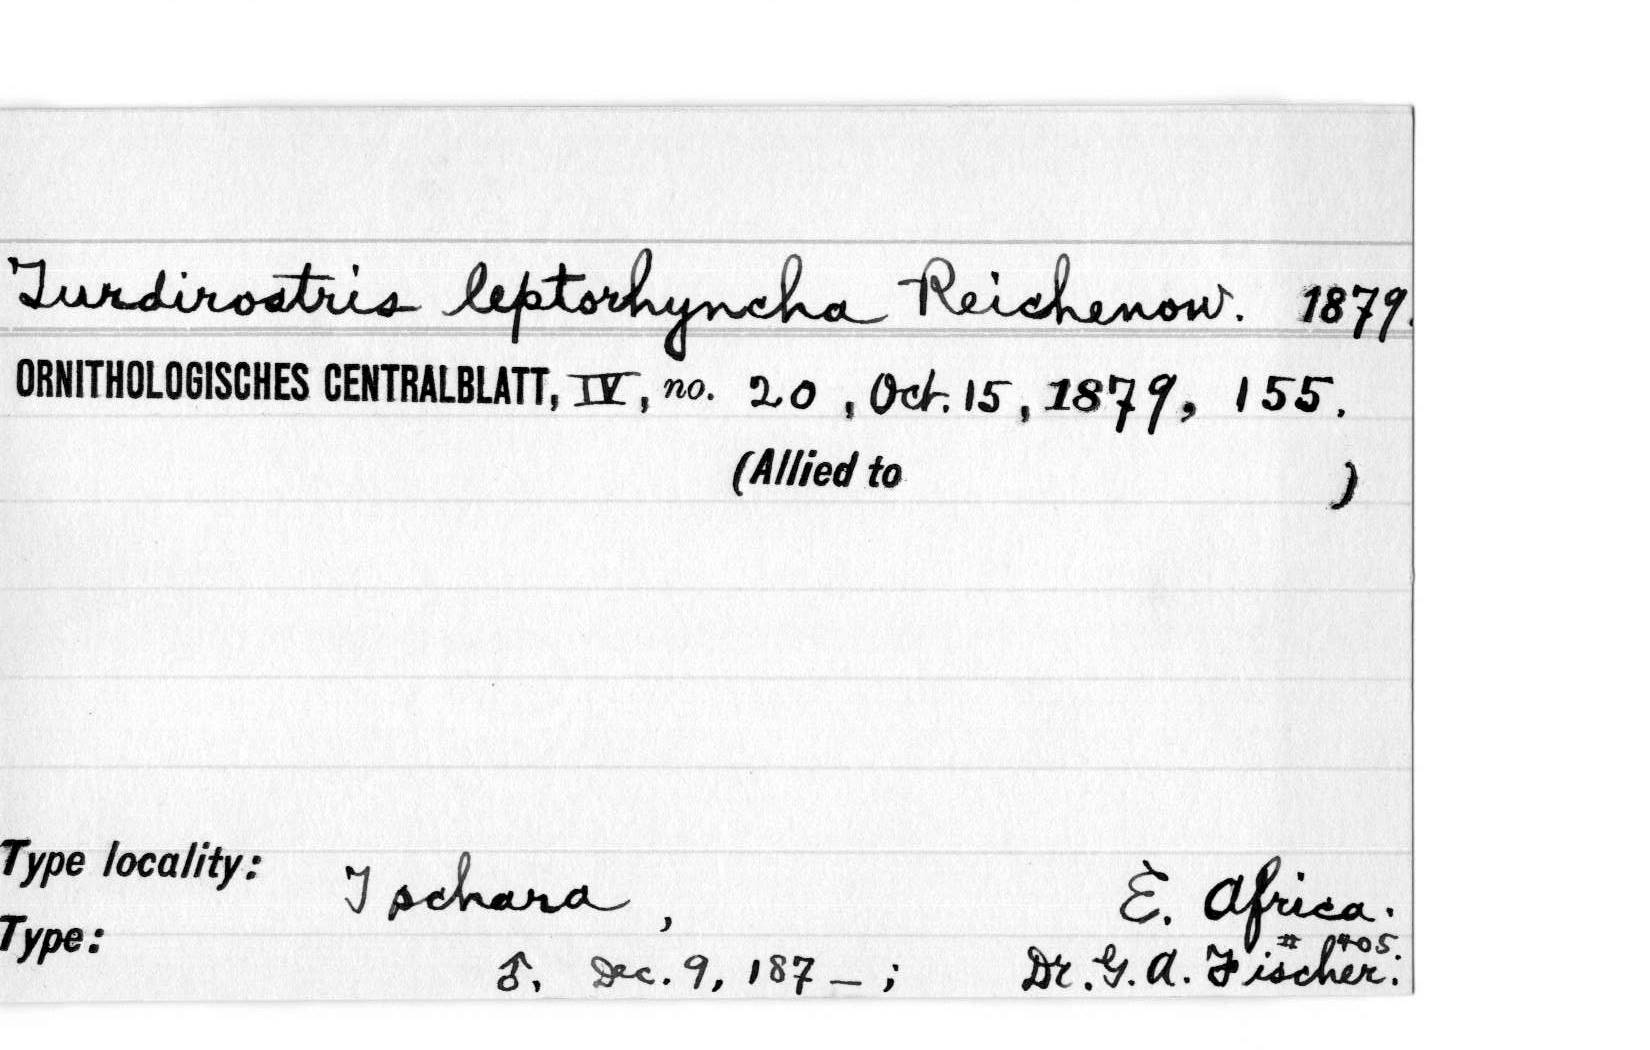 Turdirostris leptorhyncha Reichenow. 1879.
ORNITHOLOGISCHES CENTRALBLATT, IV, no. 20, Oct. 15, 1879, 155.
(Allied to )
Type locality: Tschara, E. Africa.
Type: ♂. Dec. 9, 187_; Dr. G. A. Fischer.